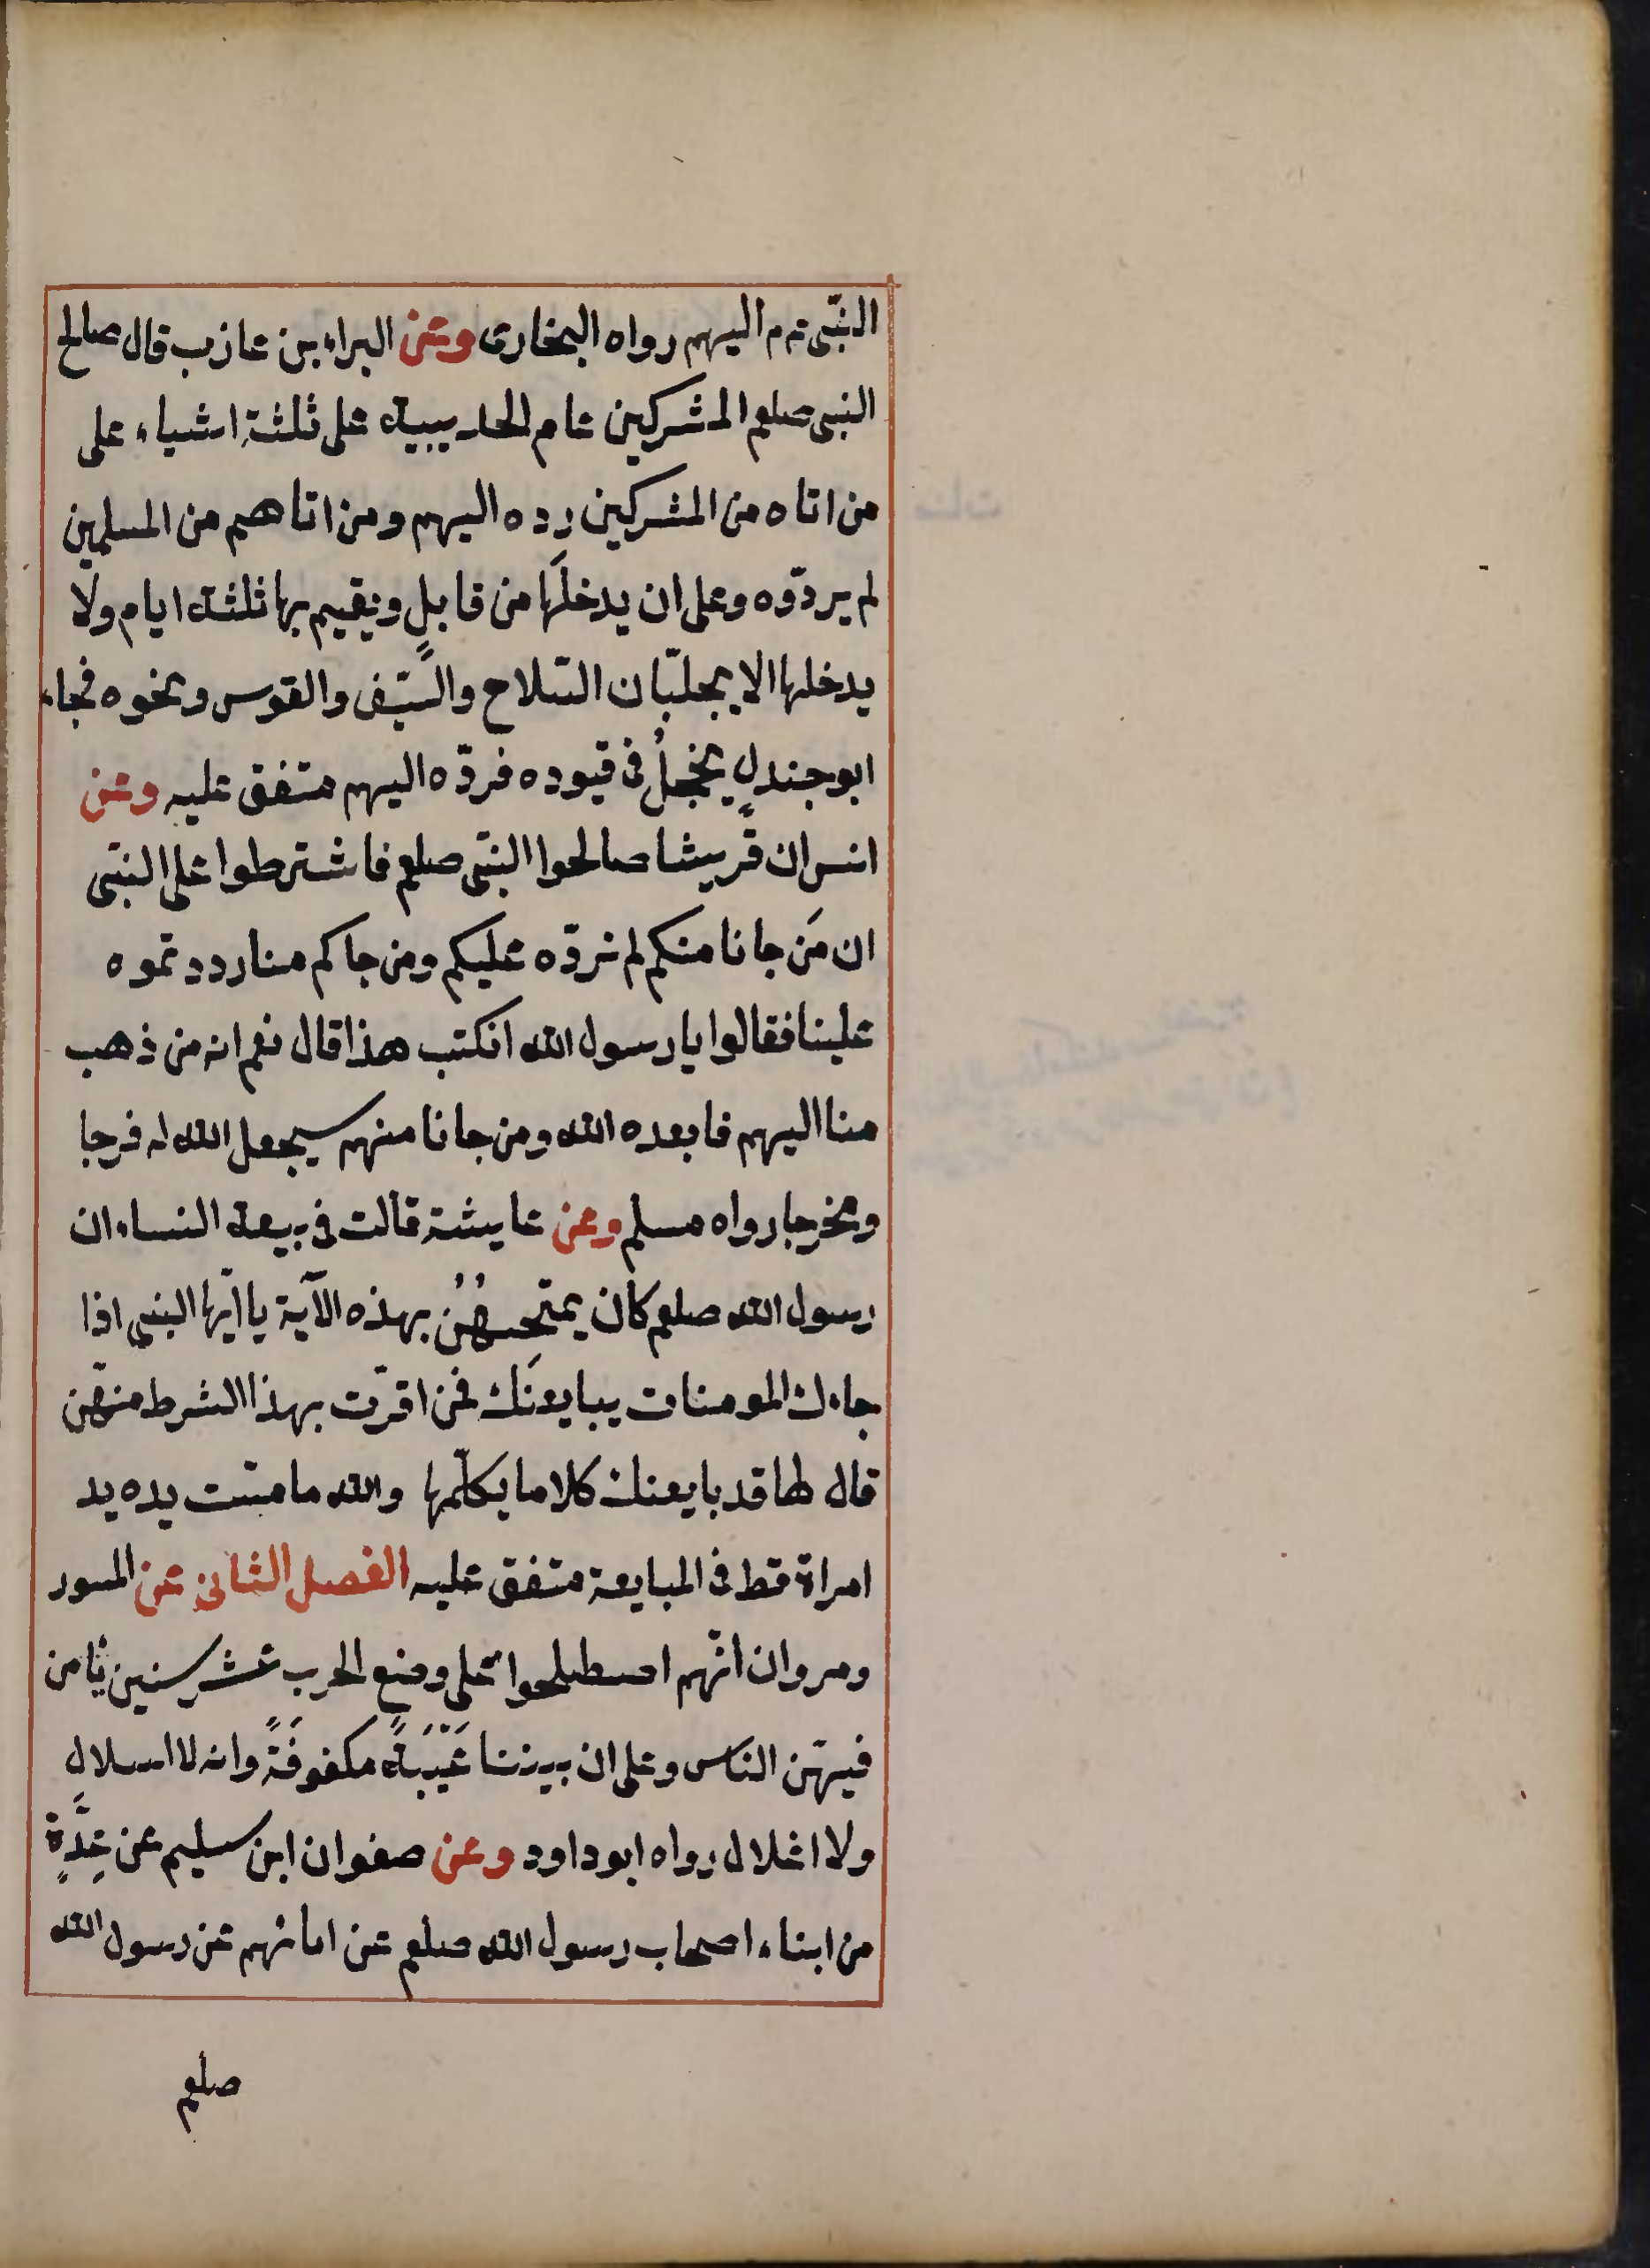 النبّى عم اليهم رواه البخارى وعن البراء بن عازب قال صالح
النبى صلعم المشركين عام الحديبية على ثلثة اشياء على
من اتاه من المشركين رده اليهم ومن اتاهم من المسلمين
لم يردّوه وعلى ان يدخلَها من قابلٍ ويقيم بها ثلثة ايام ولا
يدخلها الا بجلبّان السّلاح والسّيف والقوس ونحوه فجاء
ابو جندلٍ يحجلُ فى قيوده فردّه اليهم متفق عليه وعن
انس ان قريشا صالحوا النبّى صلعم فاشترطوا على النبّى
ان مَن جانا منكم لم نردّه عليكم ومن جاكم منا رددتموه
علينا فقالوا يا رسول الله انكتب هذا قال نعم انه من ذهب
منا اليهم فابعده الله ومن جانا منهم سيجعل الله له فرجا
ومخرجا رواه مسلم وعن عايشة قالت فى بيعة النساء ان
رسول الله صلعم كان يمتحنهُنُ بهذه الآية يا ايّها النبى اذا
جاءك المومنات يبايعنَك فمن اقرّت بهذا الشرط منهّن
قال لها قد بايعتك كلاما يكلّمها والله ما مسّت يده يد
امراة قط فى المبايعة متفق عليه الفصل الثانى عن المسور
ومروان انّهم اصطلحوا على وضع الحرب عشر سنين يامن
فيهّن الناس وعلى ان بيننا عَيْبَةً مكفوفَةً وانه لا اسلال
ولا اغلال رواه ابو داود وعن صفوان ابن سليم عن عِدَّةٍ
من ابناء اصحاب رسول الله صلعم عن ابائهم عن رسول الله
صلعم